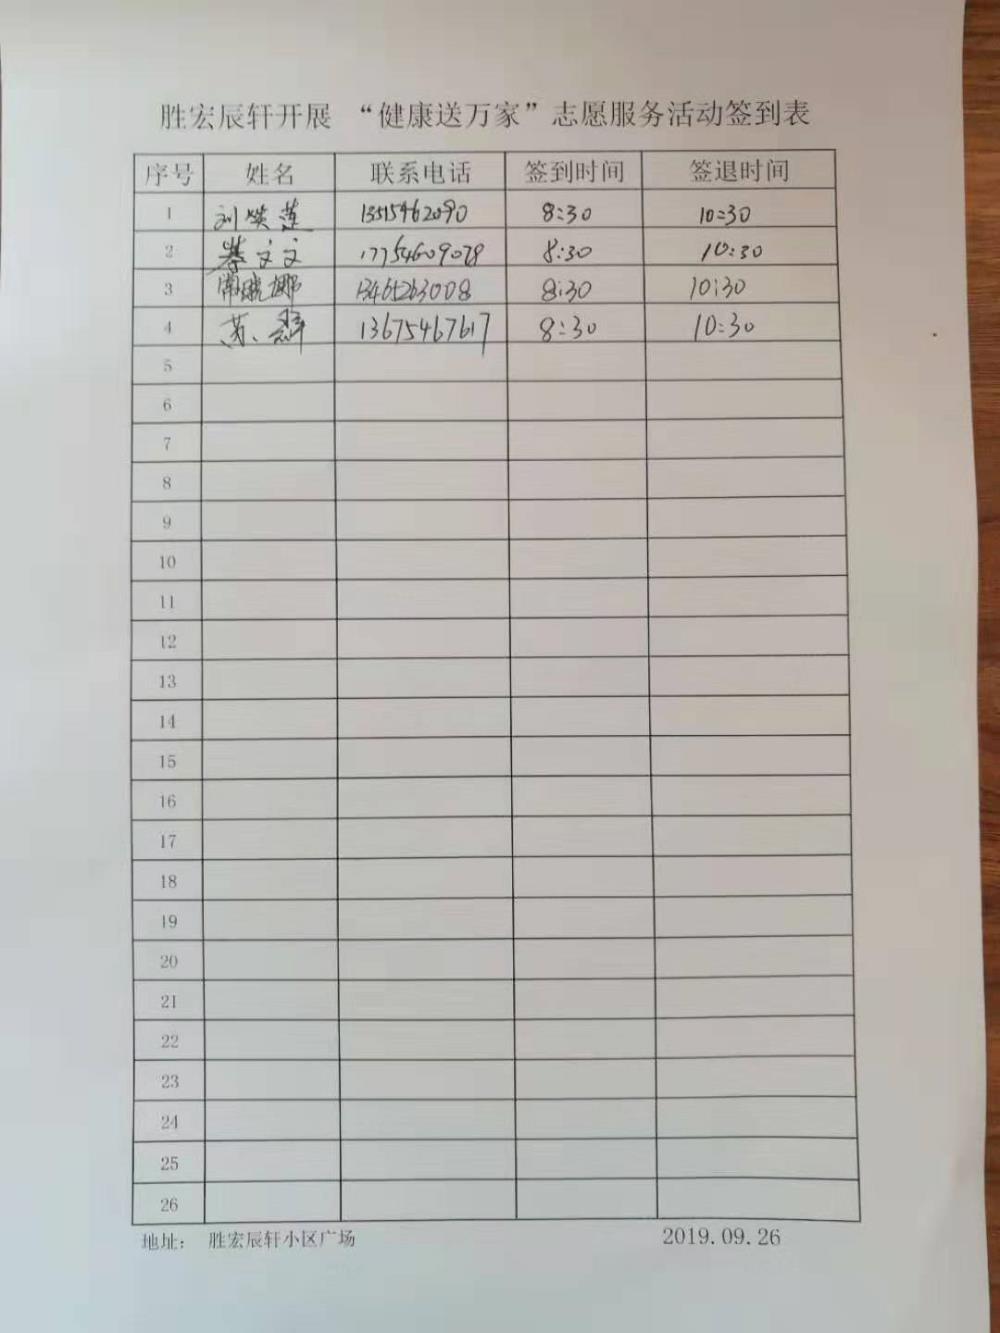 胜宏辰轩开展 “健康送万家”志愿服务活动签到表
序号 姓名 联系电话 签到时间 签退时间
1 刘笑莲 13515462090 8:30 10:30
2 綦文文 17754609078 8:30 10:30
3 常晓娜 13461263008 8:30 10:30
4 苏 13675467617 8:30 10:30
5
6
7
8
9
10
11
12
13
14
15
16
17
18
19
20
21
22
23
24
25
26
地址： 胜宏辰轩小区广场 2019.09.26